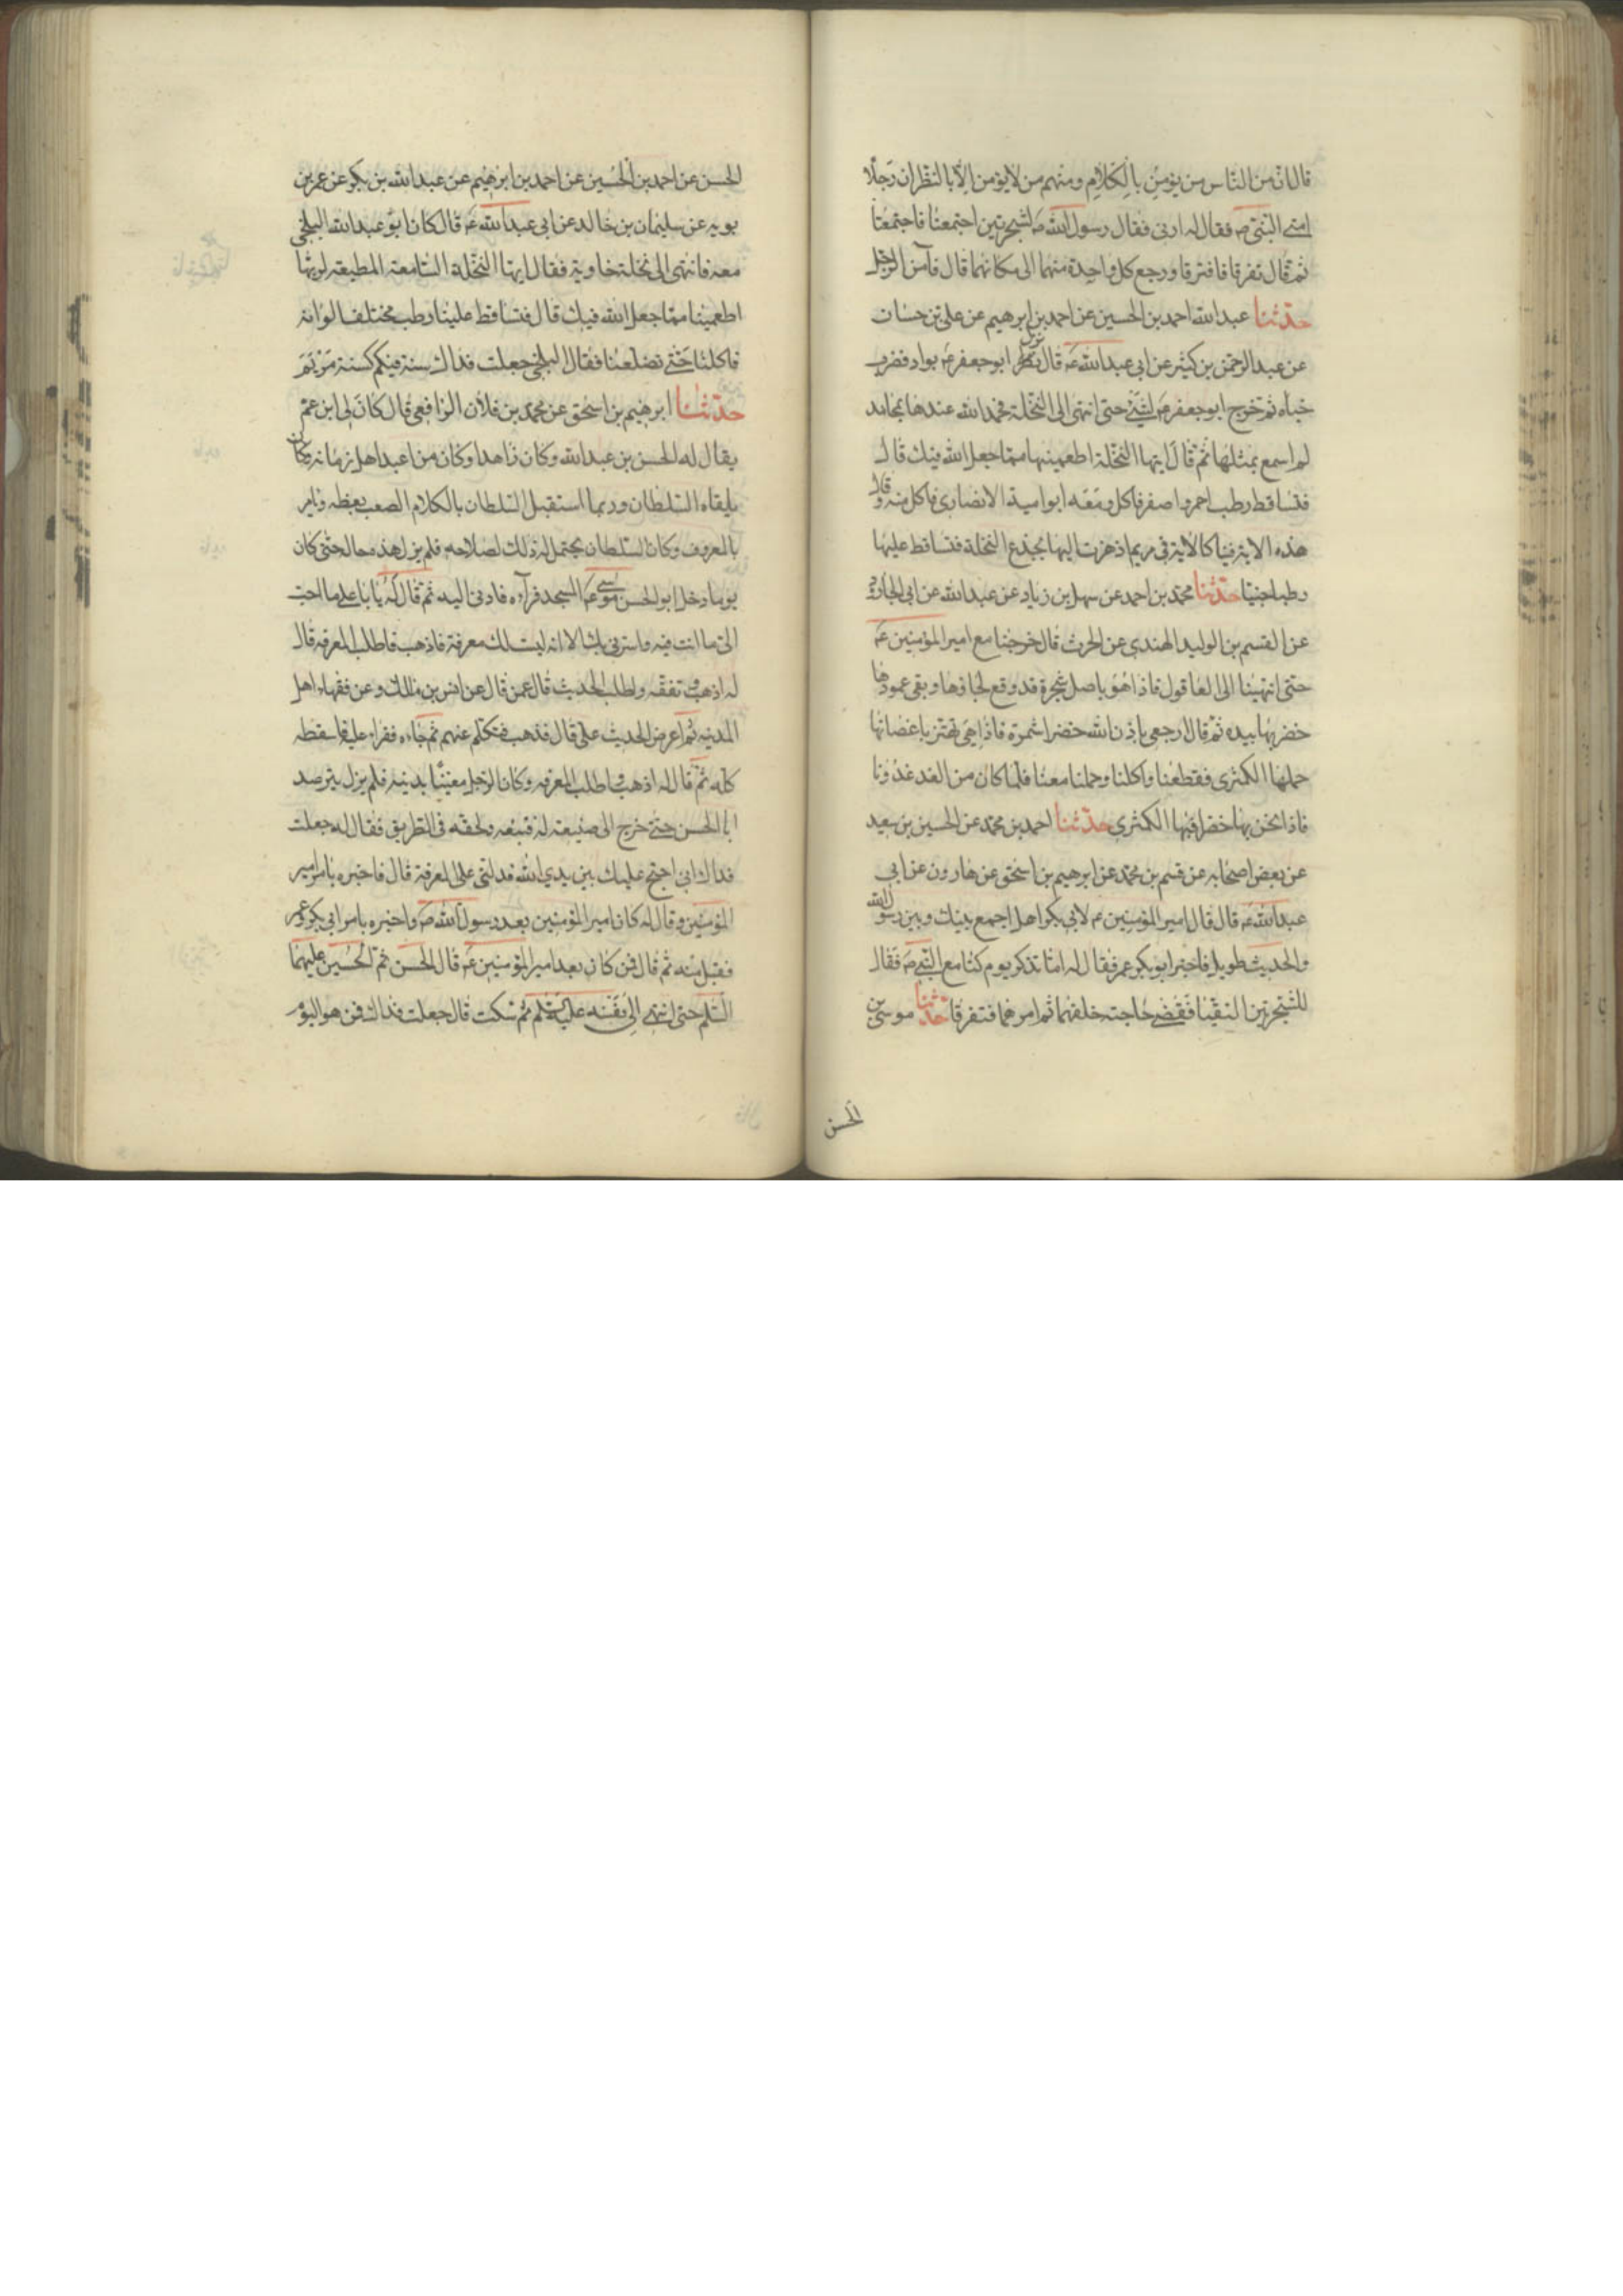 قال ان من الناس من يؤمن بالكلام ومنهم من لا يؤمن الا بالنظر ان رجلا
اتى النبي ص فقال له ارنى فقال رسول الله ص لشجرتين اجتمعتا فاجتمعتا
ثم قال تفرقا فافترقا ورجع كل واحدة منهما الى مكانهما قال فآمن الرجل
حدثنا عبدالله احمد بن الحسين عن احمد بن ابرهيم عن على بن حسان
عن عبدالرحمن بن كثير عن ابى عبدالله ع قال نزل ابو جعفر ع بواد فضرب
خباه ثم خرج ابو جعفر ع حتى انتهى الى النخلة فحمد الله عندها بمحامد
لم اسمع بمثلها ثم قال ايتها النخلة اطعمينا مما جعل الله فيك قال
فتساقط رطب احمر واصفر فاكل ومعه ابو امية الانصارى فاكل منه وقال
هذه الاية فينا كالاية فى مريم اذ هزت اليها بجذع النخلة فتساقط عليها
رطبا جنيا حدثنا محمد بن احمد عن سهل بن زياد عن عبدالله عن ابى الجارود
عن القسم بن الوليد الهندى عن الحرث قال خرجنا مع امير المؤمنين ع
حتى انتهينا الى العاقول فاذا هو باصل شجرة قد وقع لحاؤها وبقى عمودها
فضربها بيده ثم قال ارجعى باذن الله خضرا مثمرة فاذا هى تهتز باغصانها
حملها الكمثرى فقطعنا واكلنا وحملنا معنا فلما كان من الغد غدونا
فاذا نحن بها خضرا فيها الكمثرى حدثنا احمد بن محمد عن الحسين بن سعيد
عن بعض اصحابه عن قسم بن محمد عن ابرهيم بن اسحق عن هارون عن ابى
عبدالله ع قال قال امير المؤمنين ع لابى بكر اهل اجمع بينك وبين رسول الله
والحديث طويل فاخبر ابو بكر عمر فقال له اما تذكر يوم كنا مع النبى ص فقال
للشجرتين التقيا فقضى حاجته خلفهما ثم امرهما فتفرقا حدثنا موسى بن
الحسن
الحسن عن احمد بن الحسين عن احمد بن ابرهيم عن عبدالله بن بكر عن عمر بن
بويه عن سليمان بن خالد عن ابى عبدالله ع قال كان ابو عبدالله البلخى
معه فانتهى الى نخلة خاوية فقال ايتها النخلة السامعة المطيعة لربها
اطعمينا مما جعل الله فيك قال فتساقط علينا رطب مختلف الوانه
فاكلنا حتى تضلعنا فقال البلخى جعلت فداك سنة فيكم كسنة مريم
حدثنا ابرهيم بن اسحق عن محمد بن فلان الرافعى قال كان لى ابن عم
يقال له الحسن بن عبدالله وكان زاهدا وكان من اعبد اهل زمانه وكان
يلقاه السلطان وربما استقبل السلطان بالكلام الصعب يعظه ويامر
بالمعروف وكان السلطان يحتمل له ذلك لصلاحه فلم يزل هذه حاله حتى كان
يوما دخل ابو الحسن موسى ع المسجد فرآه فادنى اليه ثم قال له يا با على ما احب
الى ما انت فيه واسرنى بك الا انه ليست لك معرفة فاذهب فاطلب المعرفه قال
له اذهب وتفقه واطلب الحديث قال عمن قال عن انس بن مالك وعن فقهاء اهل
المدينه ثم اعرض الحديث على قال فذهب فتكلم عنهم ثم جاءه فقراه عليه فاسقطه
كله ثم قال له اذهب واطلب المعرفه وكان الرجل معينا بدينه فلم يزل يترصد
ابا الحسن حتى خرج الى ضيعة له فتبعه ولحقه فى الطريق فقال له جعلت
فداك انى احتج عليك بين يدي الله فدلنى على المعرفة قال فاخبره بامر امير
المؤمنين وقال له كان امير المؤمنين بعد رسول الله ص واخبره بامر ابى بكر وعمر
فقبل منه ثم قال فمن كان بعد امير المؤمنين ع قال الحسن ثم الحسين عليهما
السلم حتى انتهى الى نفسه عليه السلم ثم سكت قال جعلت فداك فمن هو اليوم